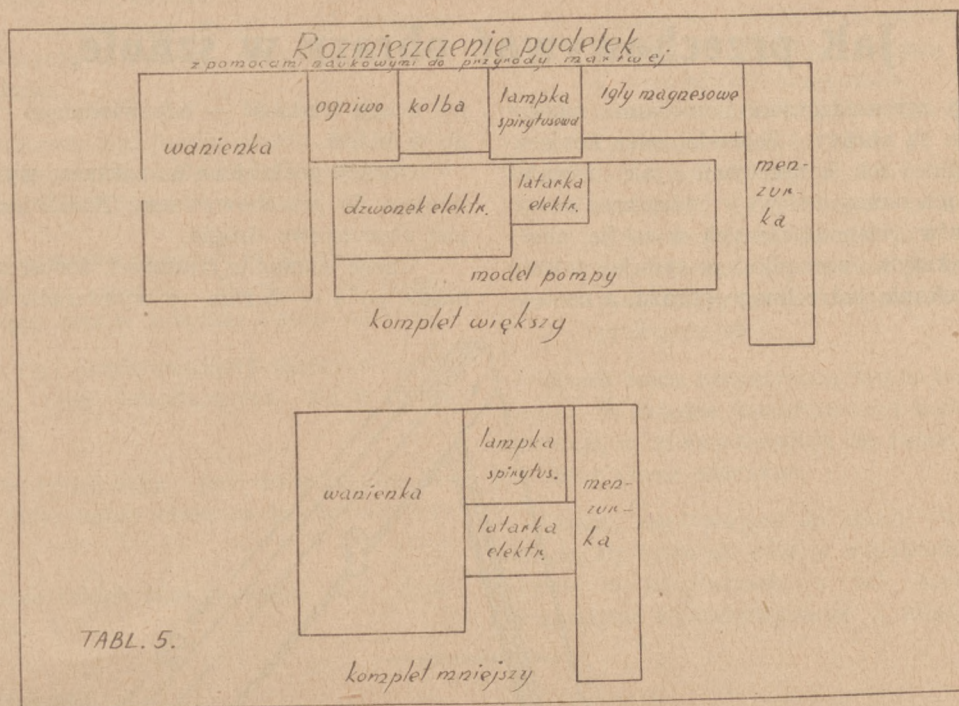 Rozmieszczenie pudełek
z pomocami naukowymi do przyrody martwej
wanienka
ogniwo
kolba
lampka
spirytusowa
igły magnesowe
men-
zur-
ka
dzwonek elektr.
latarka
elektr.
model pompy
komplet większy
wanienka
lampka
spirytus.
latarka
elektr.
men-
zur-
ka
TABL. 5.
komplet mniejszy